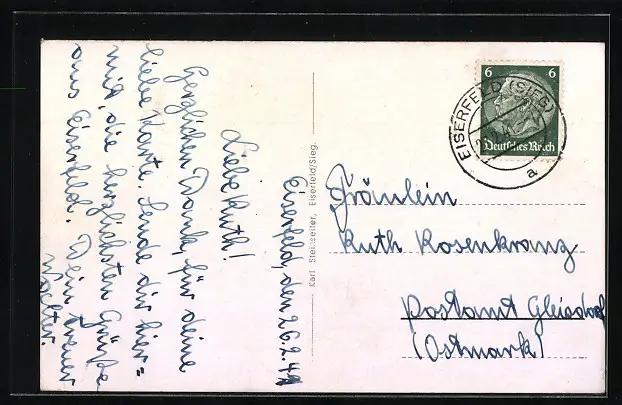 Eiserfeld, den 26.2.41
Liebe Ruth!
Herzlichen Dank, für deine
liebe Karte. Sende dir hier=
mit, die herzlichsten Grüße
aus Eiserfeld. Dein treuer
Walter.
Karl Steinseifer, Eiserfeld/Sieg.
6 6
Deutsches Reich
EISERFELD (SIEG)
a
Fräulein
Ruth Rosenkranz
Postamt Gleisdorf
(Ostmark)